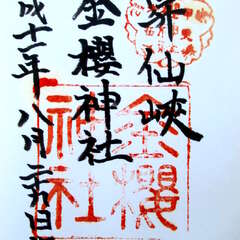 昇仙峡
金櫻神社
成十一年八月二十九日
金櫻
神社